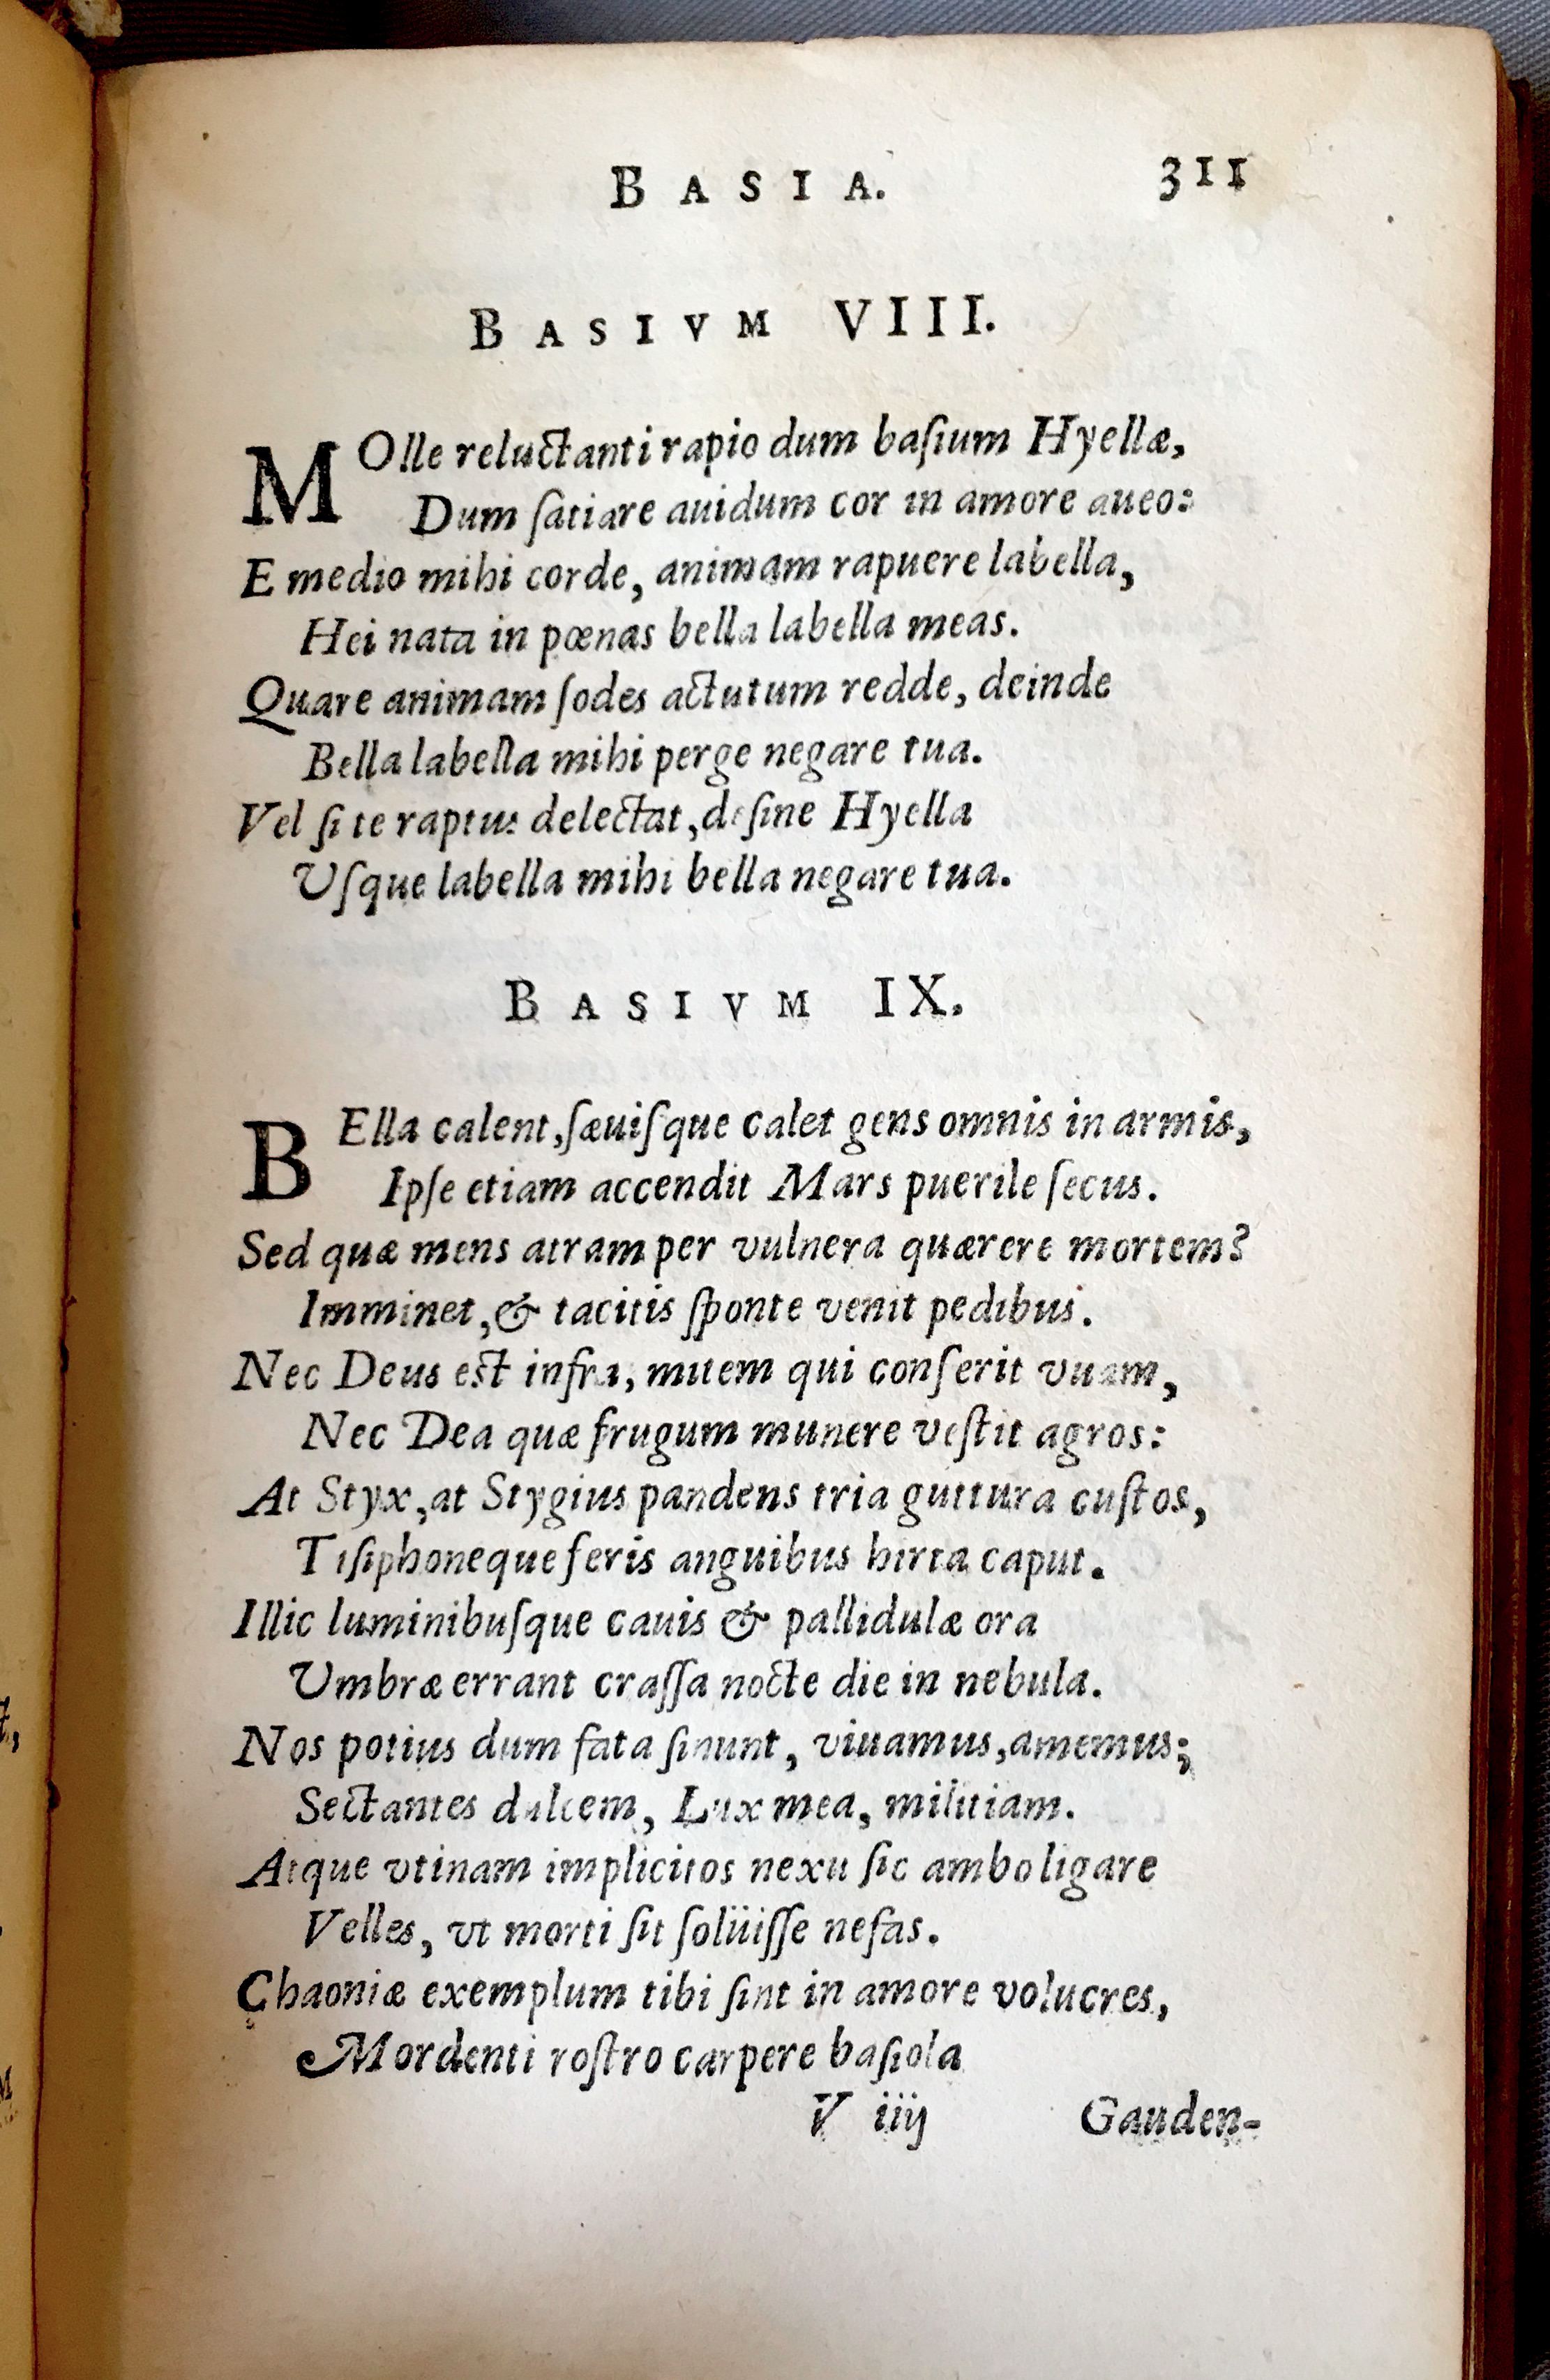 BASIA. 311
BASIVM VIII.
MOlle reluctanti rapio dum baſium Hyellæ,
Dum ſatiare auidum cor in amore aueo:
E medio mihi corde, animam rapuere labella,
Hei nata in pœnas bella labella meas.
Quare animam ſodes actutum redde, deinde
Bella labella mihi perge negare tua.
Vel ſi te raptus delectat, deſine Hyella
Uſque labella mihi bella negare tua.
BASIVM IX.
BElla calent, ſæuiſque calet gens omnis in armis,
Ipſe etiam accendit Mars puerile ſecus.
Sed quæ mens atram per vulnera quærere mortem?
Imminet, & tacitis ſponte venit pedibus.
Nec Deus est infra, mitem qui conſerit vuam,
Nec Dea quæ frugum munere veſtit agros:
At Styx, at Stygius pandens tria guttura cuſtos,
Tiſiphoneque feris anguibus hirta caput.
Illic luminibuſque cauis & pallidulæ ora
Umbræ errant craſſa nocte die in nebula.
Nos potius dum fata ſinunt, viuamus, amemus;
Sectantes dulcem, Lux mea, militiam.
Atque vtinam implicitos nexu ſic ambo ligare
Velles, vt morti ſit ſolüiſſe nefas.
Chaoniæ exemplum tibi ſint in amore volucres,
Mordenti roſtro carpere baſiola
V iiij Gauden-